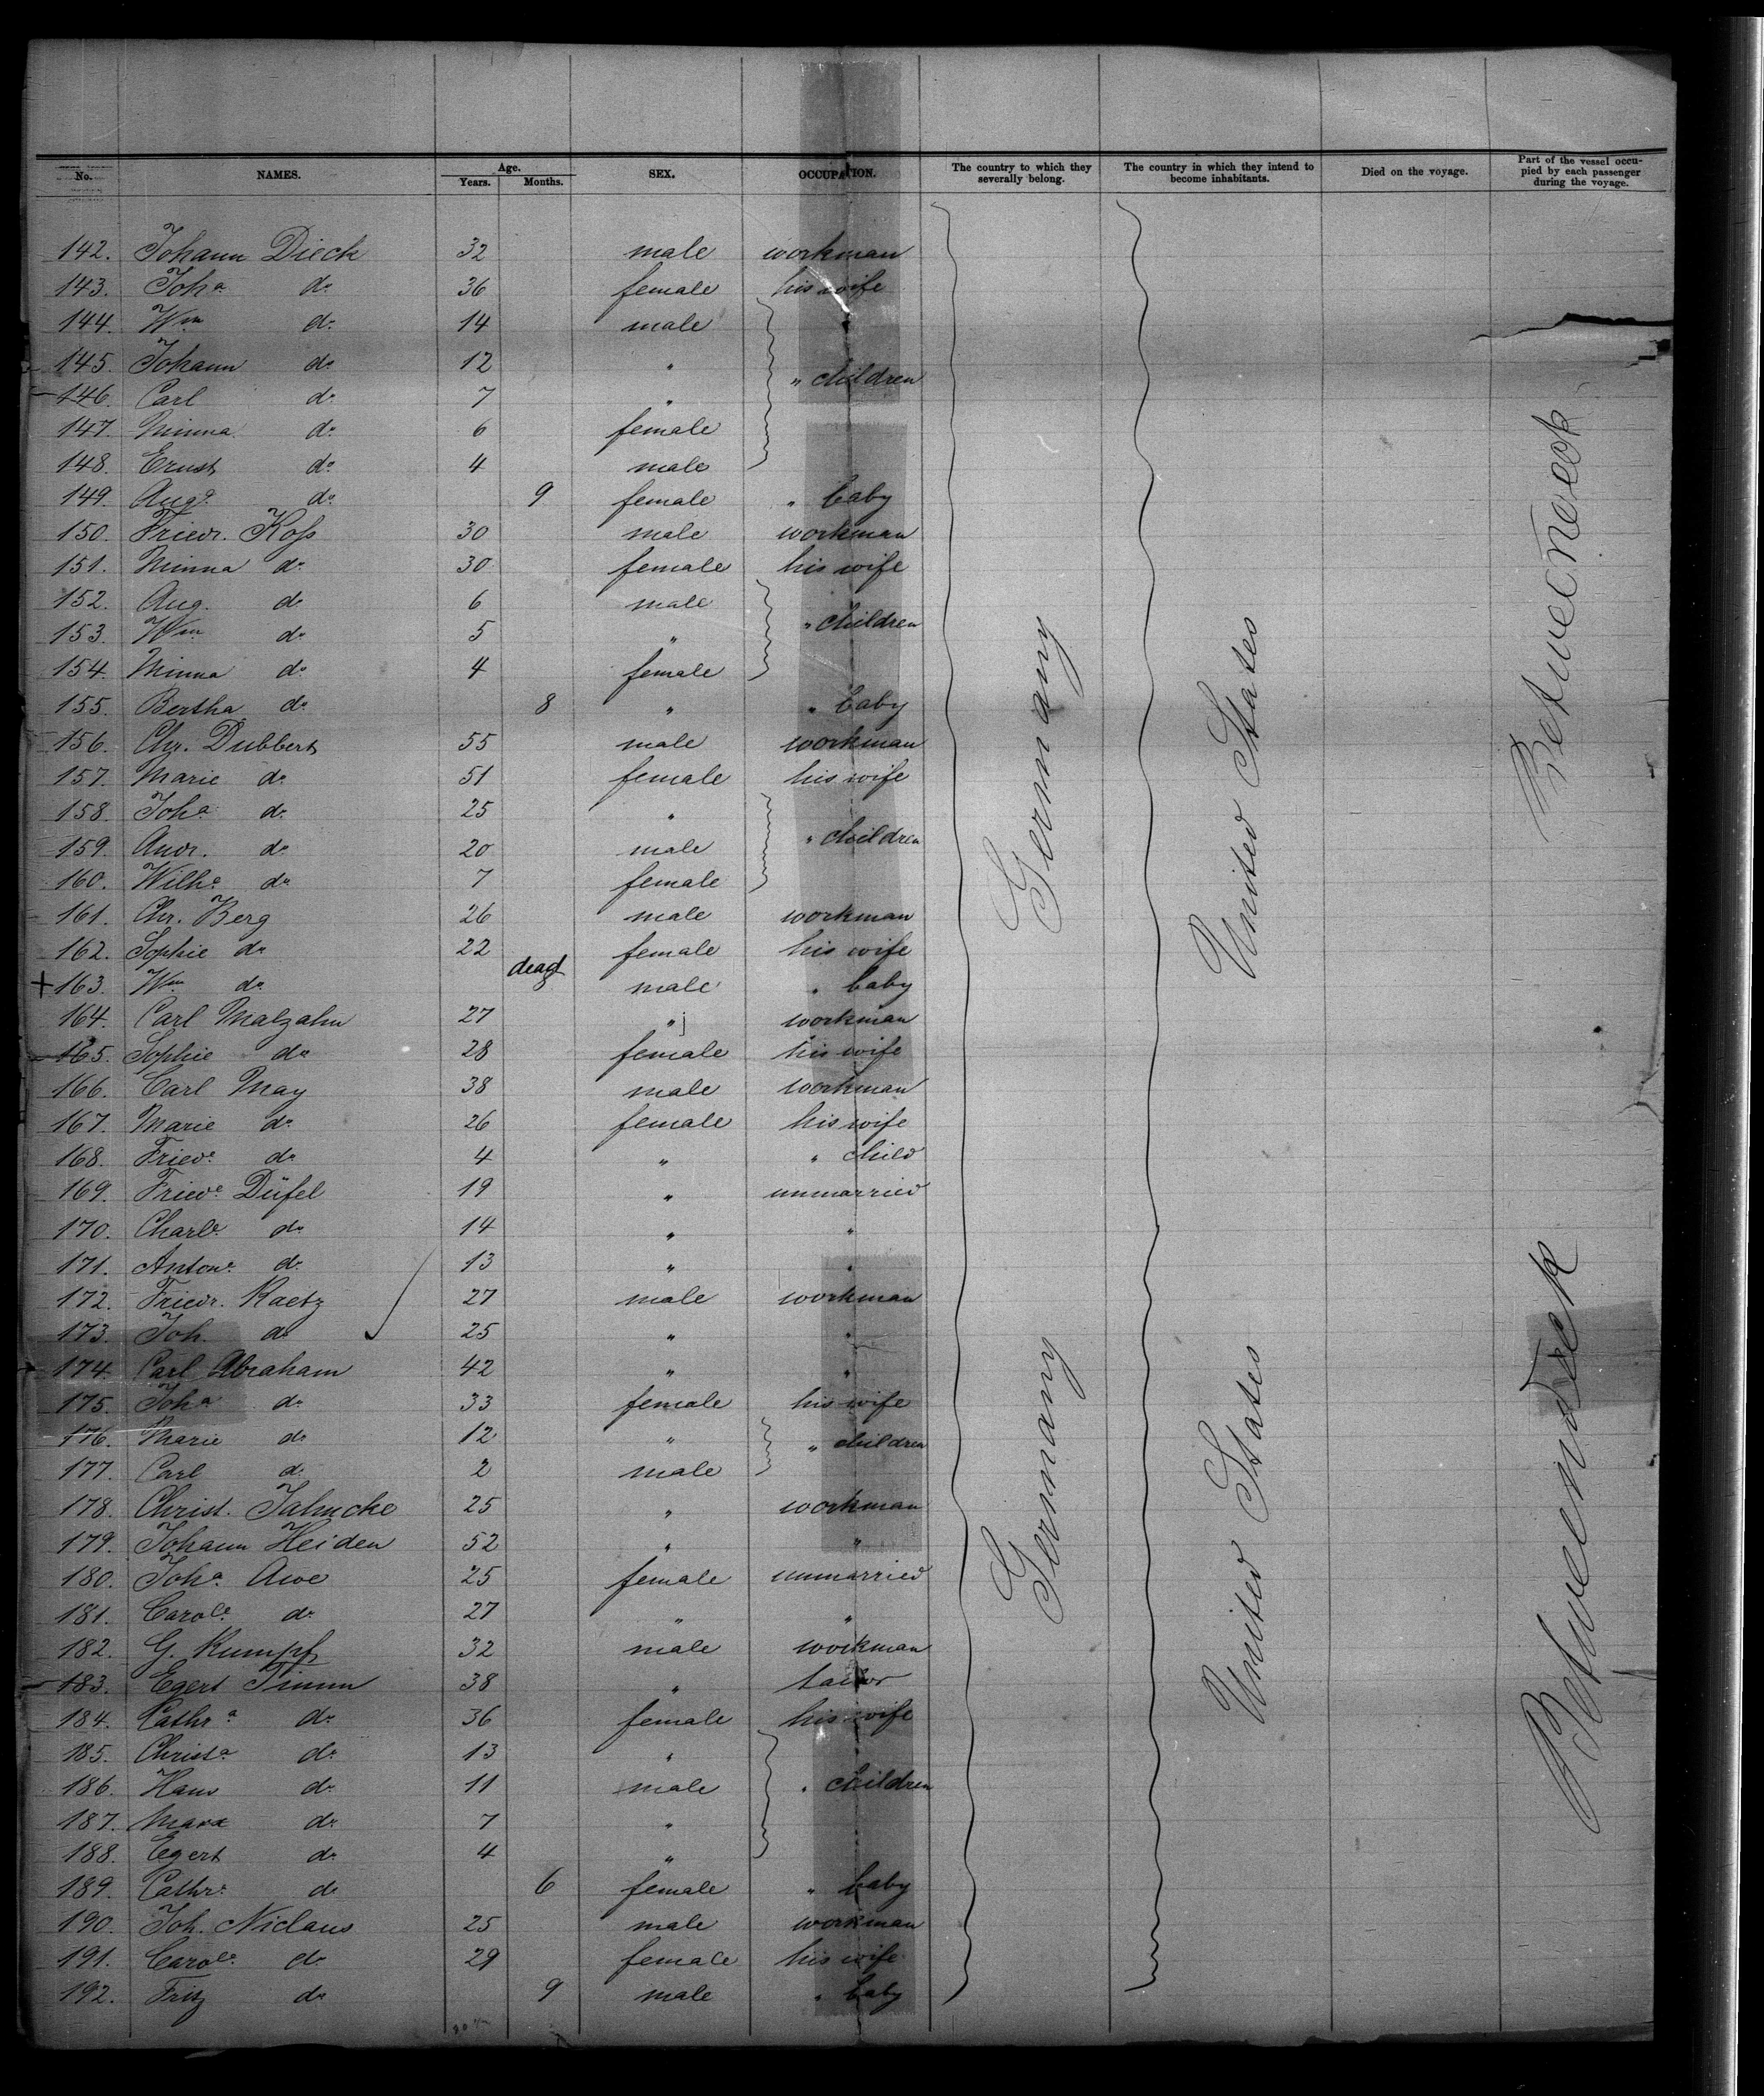 No. NAMES. Age. Years. Months. SEX. OCCUPATION. The country to which they severally belong. The country in which they intend to become inhabitants. Died on the voyage. Part of the vessel occupied by each passenger during the voyage.
142. Johann Dieck 32 male workman
143. Joh.a do. 36 female his wife
144. Wm do. 14 male
145. Johann do. 12 " " children
146. Carl do. 7 "
147. Minna do. 6 female
148. Ernst do. 4 male
149. Aug.a do. 9 female " baby
150. Friedr. Koſs 30 male workman
151. Minna do. 30 female his wife
152. Aug. do. 6 male
153. Wm do. 5 " " children
154. Minna do. 4 female
155. Bertha do. 8 " " baby
156. Chr. Dubbert 55 male workman
157. Marie do. 51 female his wife
158. Joh.a do. 25 "
159. Andr. do. 20 male " children
160. Wilh.e do. 7 female
161. Chr. Berg 26 male workman
162. Sophie do. 22 female his wife
+ 163. Wm do. dead male " baby
164. Carl Malzahn 27 " workman
165. Sophie do. 28 female his wife
166. Carl May 38 male workman
167. Marie do. 26 female his wife
168. Fried.e do. 4 " " child
169. Fried.e Düfel 19 " unmarried
170. Charl.e do. 14 " "
171. Anton.e do. 13 " "
172. Friedr. Raetz 27 male workman
173. Joh. do. 25 " "
174. Carl Abraham 42 " "
175. Joh.a do. 33 female his wife
176. Marie do. 12 " " children
177. Carl do. 2 male
178. Christ. Jahncke 25 " workman
179. Johann Heiden 52 " "
180. Joh.a Awe 25 female unmarried
181. Carol.e do. 27 " "
182. G. Rumpf 32 male workman
183. Egert Timm 38 " tailor
184. Cathr.a do. 36 female his wife
185. Christ.a do. 13 "
186. Hans do. 11 male " children
187. Marx do. 7 "
188. Egert do. 4 "
189. Cathr.a do. 6 female " baby
190. Joh. Niclaus 25 male workman
191. Carol.e do. 29 female his wife
192. Fritz do. 9 male " baby
Germany
Germany
United States
United States
Betweendeck
Betweendeck